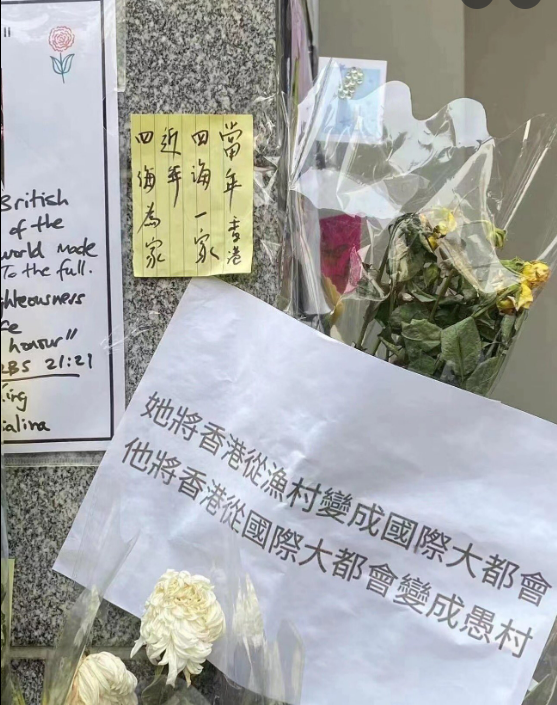 British
of the
world made
To the full.
ghteousness
fe
honour"
RBS 21:21
當年香港
四海一家
近年
四海為家
她將香港從漁村變成國際大都會
他將香港從國際大都會變成愚村